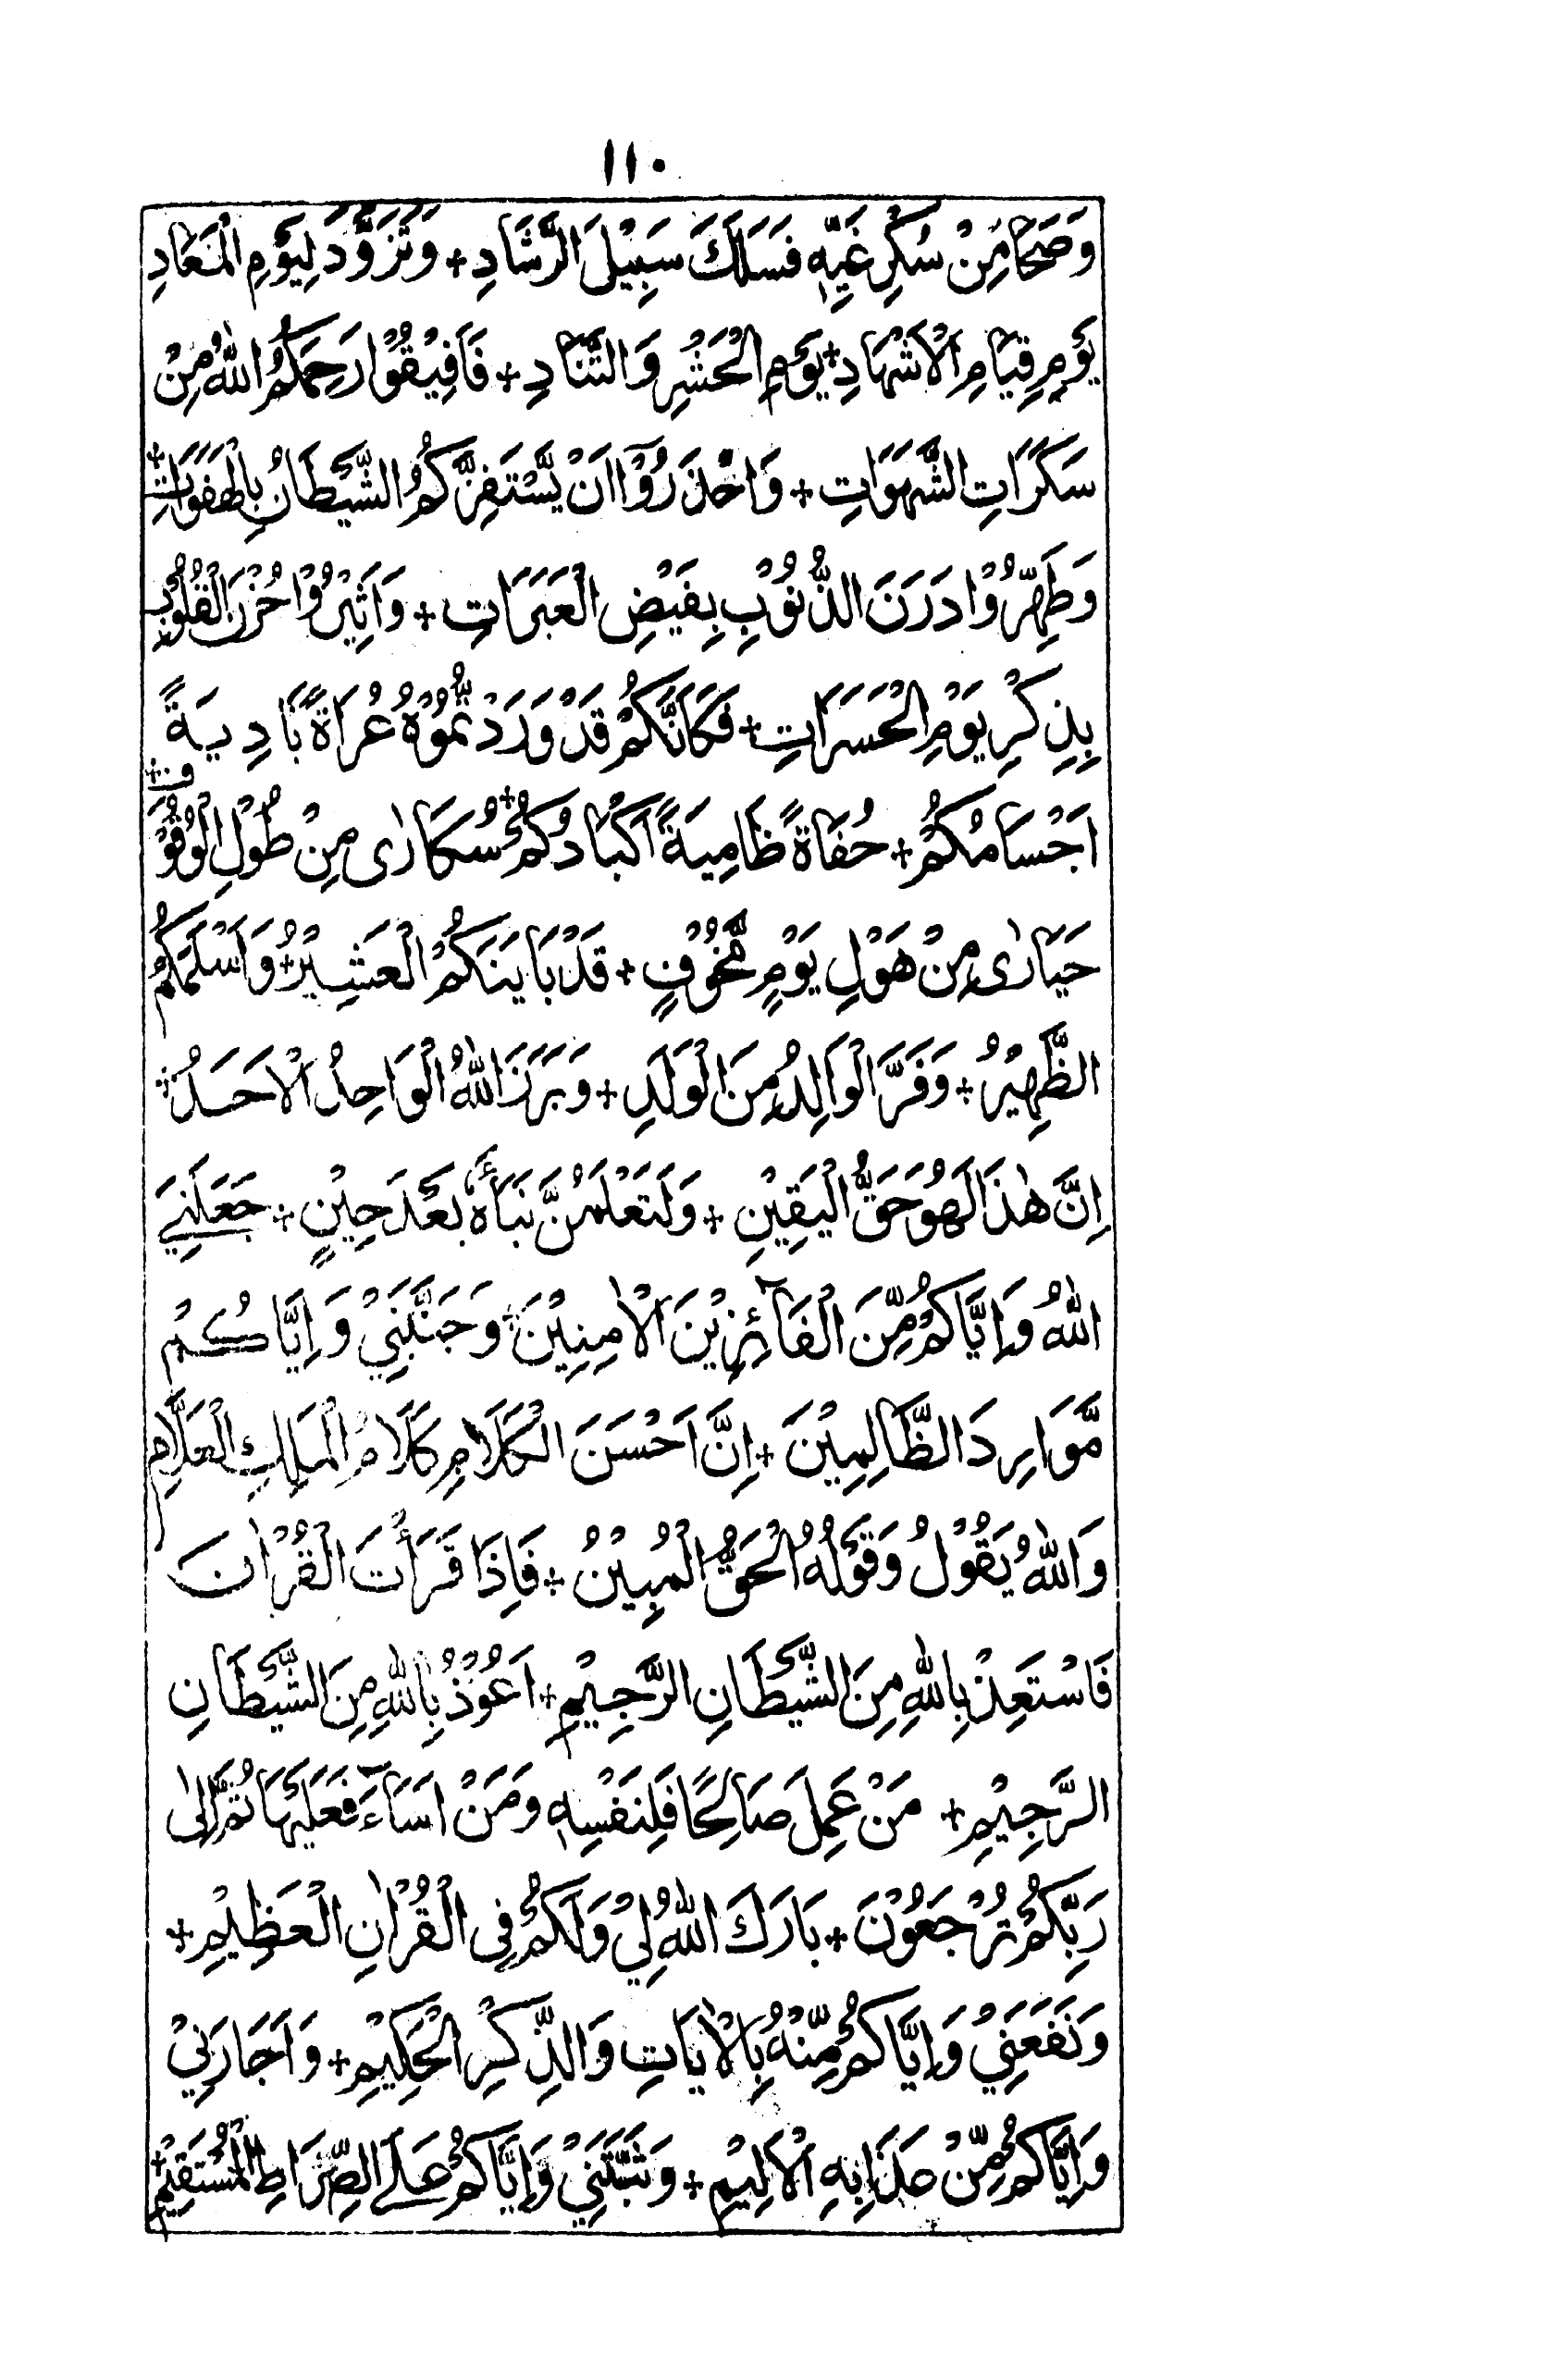 ١١٠
وَصَحَا مِنْ سُكْرِ غَيِّهٖ فَسَلَكَ سَبِيْلَ الرَّشَادِ + وَتَزَوَّدَ لِيَوْمِ الْمَعَادِ
يَوْمِ قِيَامِ الْاَشْهَادِ + يَوْمِ الْحَشْرِ وَالتَّنَادِ + فَاَفِيْقُوْا رَحِمَكُمُ اللّٰهُ مِنْ
سَكَرَاتِ الشَّهَوَاتِ + وَاحْذَرُوْٓا اَنْ يَّسْتَفِزَّكُمُ الشَّيْطَانُ بِالْهَفَوَاتِ +
وَطَهِّرُوْا دَرَنَ الذُّنُوْبِ بِفَيْضِ الْعَبَرَاتِ + وَاَثِيْرُوْا حُزْنَ الْقُلُوْبِ
بِذِكْرِ يَوْمِ الْحَسَرَاتِ + فَكَاَنَّكُمْ قَدْ وَرَدْتُّمُوْهُ عُرَاةً بَادِيَةً
اَجْسَامُكُمْ + حُفَاةً ظَامِيَةً اَكْبَادُكُمْ + سُكَارٰى مِنْ طُوْلِ الْوُقُوْفِ +
حَيَارٰى مِنْ هَوْلِ يَوْمٍ مَّخُوْفٍ + قَدْ بَايَنَكُمُ الْعَشِيْرُ + وَاَسْلَمَكُمُ
الظَّهِيْرُ + وَفَرَّ الْوَالِدُ مِنَ الْوَلَدِ + وَبَرَزَ اللّٰهُ الْوَاحِدُ الْاَحَدُ +
اِنَّ هٰذَا لَهُوَ حَقُّ الْيَقِيْنِ + وَلَتَعْلَمُنَّ نَبَاَهٗ بَعْدَ حِيْنٍ + جَعَلَنِيَ
اللّٰهُ وَاِيَّاكُمْ مِّنَ الْفَآئِزِيْنَ الْاٰمِنِيْنَ + وَجَنَّبَنِيْ وَاِيَّاكُمْ
مَّوَارِدَ الظَّالِمِيْنَ + اِنَّ اَحْسَنَ الْكَلَامِ كَلَامُ الْمَلِكِ الْعَلَّامِ
وَاللّٰهُ يَقُوْلُ وَقَوْلُهُ الْحَقُّ الْمُبِيْنُ + فَاِذَا قَرَأْتَ الْقُرْاٰنَ
فَاسْتَعِذْ بِاللّٰهِ مِنَ الشَّيْطَانِ الرَّجِيْمِ + اَعُوْذُ بِاللّٰهِ مِنَ الشَّيْطَانِ
الرَّجِيْمِ + مَنْ عَمِلَ صَالِحًا فَلِنَفْسِهٖ وَمَنْ اَسَآءَ فَعَلَيْهَا ثُمَّ اِلٰى
رَبِّكُمْ تُرْجَعُوْنَ + بَارَكَ اللّٰهُ لِيْ وَلَكُمْ فِى الْقُرْاٰنِ الْعَظِيْمِ +
وَنَفَعَنِيْ وَاِيَّاكُمْ مِّنْهُ بِالْاٰيَاتِ وَالذِّكْرِ الْحَكِيْمِ + وَاَجَارَنِيْ
وَاِيَّاكُمْ مِّنْ عَذَابِهِ الْاَلِيْمِ + وَثَبَّتَنِيْ وَاِيَّاكُمْ عَلَى الصِّرَاطِ الْمُسْتَقِيْمِ +